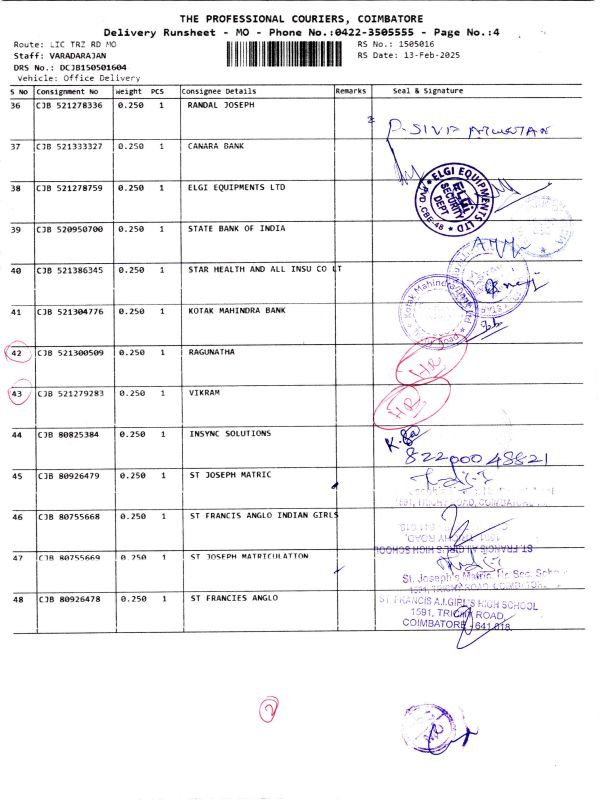 THE PROFESSIONAL COURIERS, COIMBATORE
Delivery Runsheet - MO - Phone No.:0422-3505555 - Page No.:4
Route: LIC TRZ RD MO
RS No.: 1505016
Staff: VARADARAJAN
RS Date: 13-Feb-2025
DRS No.: DCJB150501604
Vehicle: Office Delivery
S No Consignment No Weight PCS Consignee Details Remarks Seal & Signature
36 CJB 521278336 0.250 1 RANDAL JOSEPH
37 CJB 521333327 0.250 1 CANARA BANK
38 CJB 521278759 0.250 1 ELGI EQUIPMENTS LTD
ELGI EQUIPMENTS LTD
ELGI
SECURITY
DEPT
39 CJB 520950700 0.250 1 STATE BANK OF INDIA
40 CJB 521386345 0.250 1 STAR HEALTH AND ALL INSU CO LT
41 CJB 521304776 0.250 1 KOTAK MAHINDRA BANK
Kotak Mahindra Bank Ltd
42 CJB 521300509 0.250 1 RAGUNATHA
43 CJB 521279283 0.250 1 VIKRAM
44 CJB 80825384 0.250 1 INSYNC SOLUTIONS
45 CJB 80926479 0.250 1 ST JOSEPH MATRIC
46 CJB 80755668 0.250 1 ST FRANCIS ANGLO INDIAN GIRLS
ST.FRANCIS A.I.GIRL'S HIGH SCHOOL
47 CJB 80755669 0.250 1 ST JOSEPH MATRICULATION
St. Joseph's Matric. Hr. Sec.
48 CJB 80926478 0.250 1 ST FRANCIES ANGLO
ST. FRANCIS A.I.GIRL'S HIGH SCHOOL
1591, TRICHY ROAD,
COIMBATORE - 641 018.
2